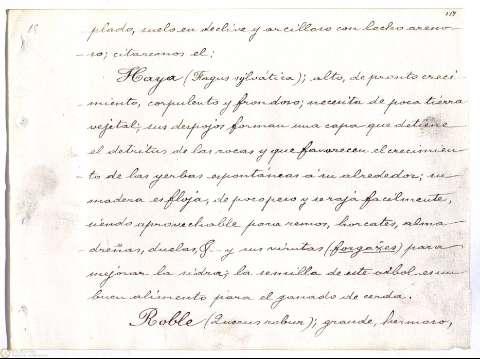 119
15
plado, suelo en declive y arcilloso con lecho areno-
-so; citaremos el:
Haya (Fagus sylvática); alto, de pronto creci-
miento, corpulento y frondoso; necesita de poca tierra
vejetal; sus despojos forman una capa que detiene
el detritus de las rocas y que favorecen el crecimien-
to de las yerbas espontáneas á su alrededor; su
madera es floja, de poco peso y se raja facilmente,
siendo aprovechable para remos, horcates, alma-
dreñas, duelas, &. y sus virutas (forgaxes) para
mejorar la sidra; la semilla de este arbol es un
buen alimento para el ganado de cerda.
Roble (Quercus robur); grande, hermoso,